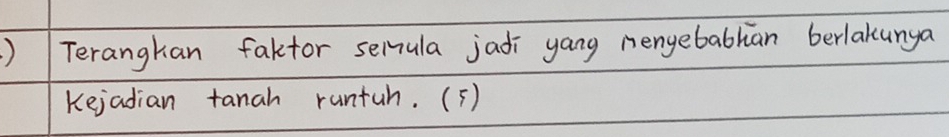 .) Terangkan faktor semula jadi yang menyebabkan berlakunya
Kejadian tanah runtuh. (5)